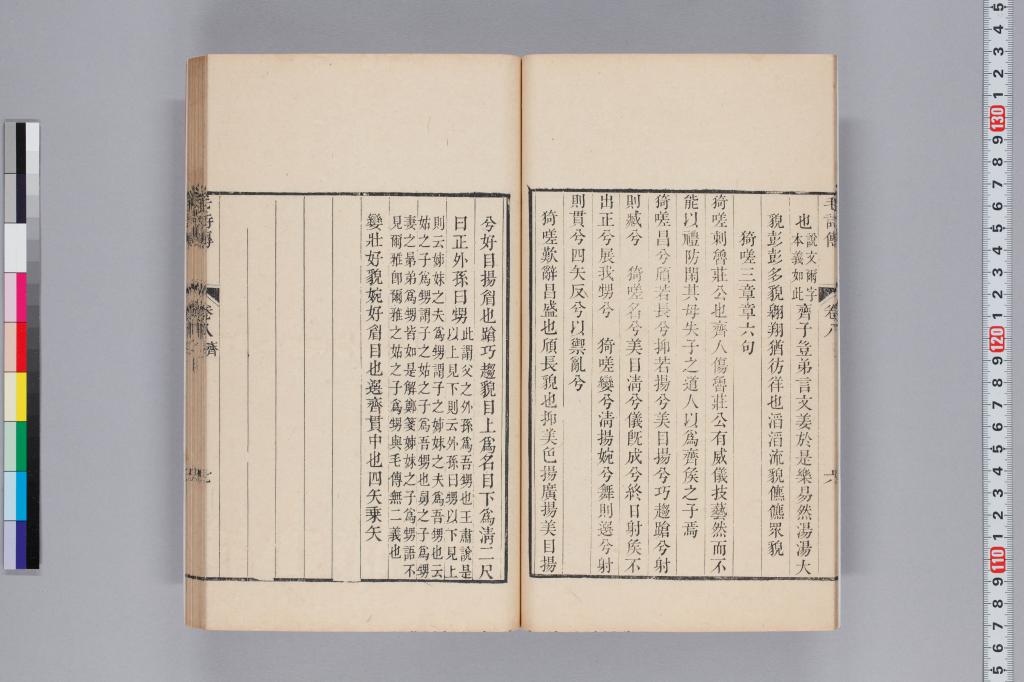 也說文爾字本義如此齊子豈弟言文姜於是樂易然湯湯大
貌彭彭多貌翱翔猶彷徉也滔滔流貌儦儦眾貌
猗嗟三章章六句
猗嗟刺魯莊公也齊人傷魯莊公有威儀技藝然而不
能以禮防閑其母失子之道人以爲齊矦之子焉
猗嗟昌兮頎若長兮抑若揚兮美目揚兮巧趨蹌兮射
則臧兮 猗嗟名兮美目淸兮儀旣成兮終日射矦不
出正兮展我甥兮 猗嗟孌兮淸揚婉兮舞則選兮射
則貫兮四矢反兮以禦亂兮
猗嗟歎辭昌盛也頎長貌也抑美色揚廣揚美目揚
兮好目揚眉也蹌巧趨貌目上爲名目下爲淸二尺
曰正外孫曰甥此謂父之外孫爲吾甥也王肅說是
以上見下則云外孫曰甥以下見上
則云姊妹之夫爲甥謂子之姊妹之夫爲吾甥也云
姑之子爲甥謂子之姑之子爲吾甥也舅之子爲甥
妻之晜弟爲甥皆如是解鄭箋姊妹之子爲甥語不
見爾雅卽爾雅之姑之子爲甥與毛傳無二義也
孌壯好貌婉好眉目也選齊貫中也四矢乘矢
毛詩傳
卷八
毛詩傳
卷八 齊
七